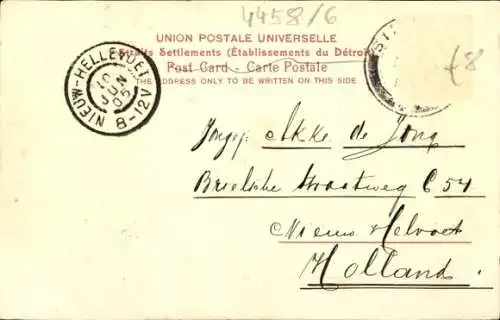 4458/6
UNION POSTALE UNIVERSELLE
Straits Settlements (Établissements du Détroit)
Post Card - Carte Postale
THE ADDRESS ONLY TO BE WRITTEN ON THIS SIDE
£8
NIEUW-HELLEVOET
10 JUN 05
8-12V
Akke de Jong
Brielsche Straatweg C 54
Nieuw Helvoet
Holland.